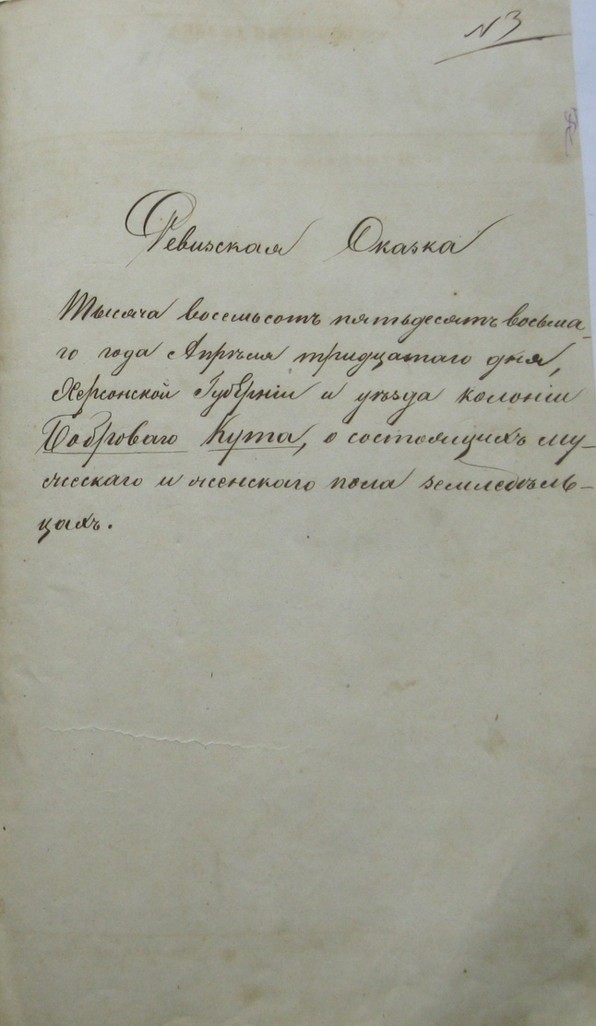 N 3
Ревизская Сказка
Тысяча восемьсотъ пятьдесятъ восьма-
го года Апрѣля тридцатаго дня,
Херсонской Губерніи и уѣзда колоніи
Боброваго Кута, о состоящихъ му-
жескаго и женскаго пола земледѣль-
цахъ.